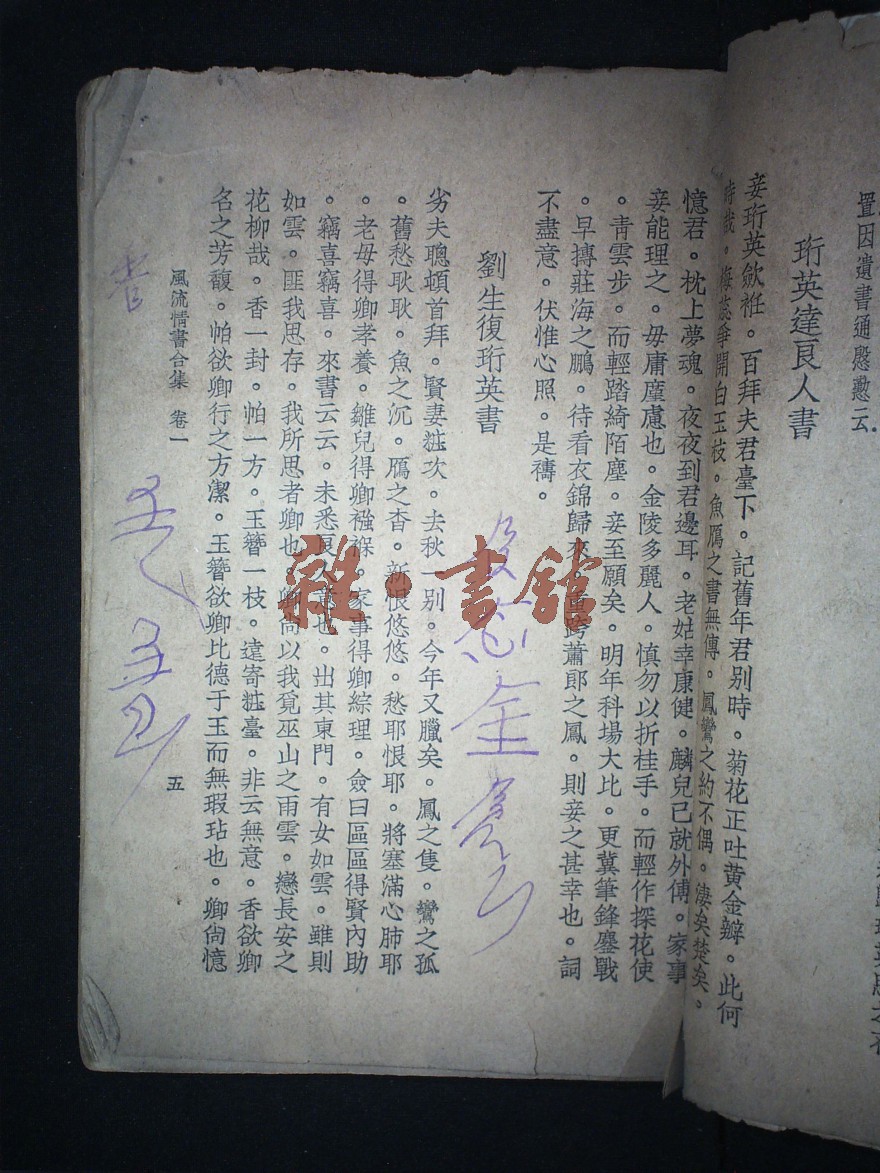 置因遺書通慇懃云．
珩英達良人書
妾珩英歛袵。百拜夫君臺下。記舊年君別時。菊花正吐黃金瓣。此何
時哉。梅蕊爭開白玉枝。魚鴈之書無傳。鳳鸞之約不偶。淒矣楚矣。
憶君。枕上夢魂。夜夜到君邊耳。老姑幸康健。麟兒已就外傅。家事
妾能理之。毋庸塵慮也。金陵多麗人。慎勿以折桂手。而輕作探花使
。青雲步。而輕踏綺陌塵。妾至願矣。明年科場大比。更冀筆鋒鏖戰
。早摶莊海之鵬。待看衣錦歸來。重跨蕭郎之鳳。則妾之甚幸也。詞
不盡意。伏惟心照。是禱。
劉生復珩英書
劣夫聰頓首拜。賢妻粧次。去秋一別。今年又臘矣。鳳之隻。鸞之孤
。舊愁耿耿。魚之沉。鴈之杳。新恨悠悠。愁耶恨耶。將塞滿心肺耶
。老母得卿孝養。雛兒得卿襁褓。家事得卿綜理。僉曰區區得賢內助
。竊喜竊喜。來書云云。未悉良人意也。出其東門。有女如雲。雖則
如雲。匪我思存。我所思者卿也。卿尚以我覓巫山之雨雲。戀長安之
花柳哉。香一封。帕一方。玉簪一枝。遠寄粧臺。非云無意。香欲卿
名之芳馥。帕欲卿行之方潔。玉簪欲卿比德于玉而無瑕玷也。卿尙憶
風流情書合集 卷一
五
雜·書館